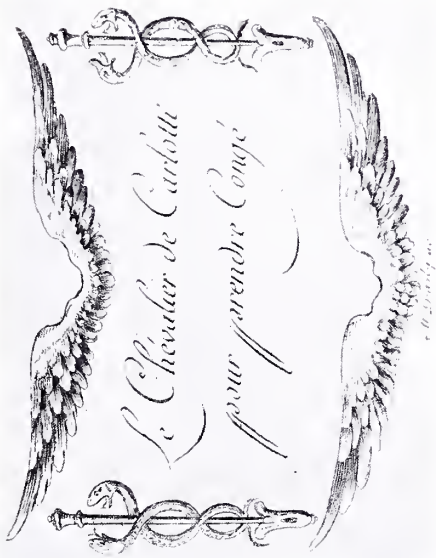 Le Chevalier de Carlotti
pour prendre Congé